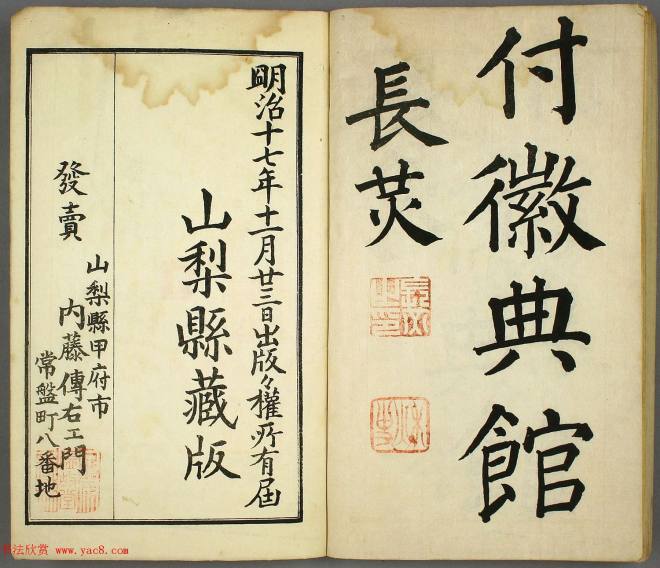 付徽典館
長炗
明治十七年十一月廿三日出版々權所有届
山梨縣藏版
發賣
山梨縣甲府市
内藤傳右エ門
常盤町八番地
法欣赏 www.yac8.com